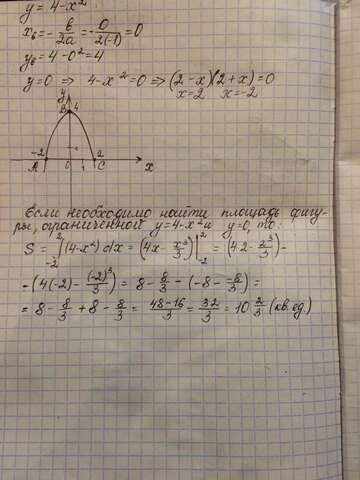 y = 4-x²
x₆ = -b/2a = -0/2(-1) = 0
y₆ = 4-0² = 4
y=0 => 4-x²=0 => (2-x)(2+x)=0
x=2 x=-2
y
B 4
-2 2
A 0 1 C x
Если необходимо найти площадь фигу-
ры, ограниченной y=4-x² и y=0, то:
S = ∫₋₂² (4-x²)dx = (4x - x³/3)|₋₂² = (4·2 - 2³/3) -
-(4(-2) - (-2)³/3) = 8 - 8/3 - (-8 - -8/3) =
= 8 - 8/3 + 8 - 8/3 = 48-16/3 = 32/3 = 10 2/3 (кв. ед.)